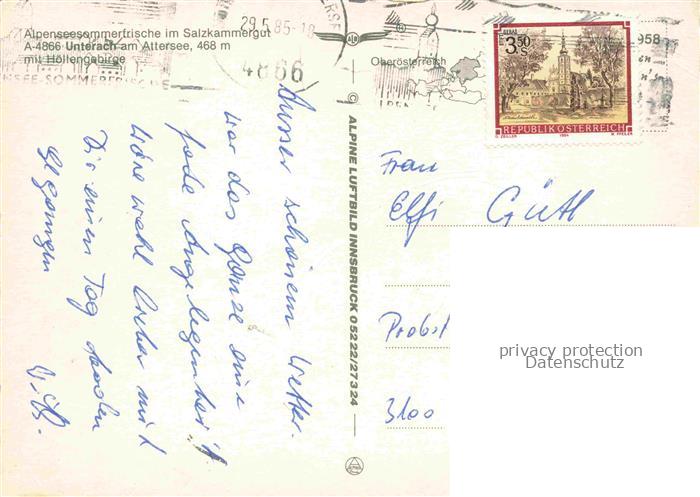 Alpenseesommerfrische im Salzkammergut
A-4866 Unterach am Attersee, 468 m
mit Höllengebirge
29.5.85-18
4866
NSEE-SOMMERFRISCHE
Oberösterreich
958
3.50 S
REPUBLIK ÖSTERREICH
1984
© ALPINE LUFTBILD INNSBRUCK 0 52 22/2 73 24
Ausser schönem Wetter
war das Ganze eine
fade Angelegenheit
Wäre wohl lieber mit
Dir einen Tag baden
gegangen
Frau
Elfi Gütl
Probst
3100
privacy protection
Datenschutz